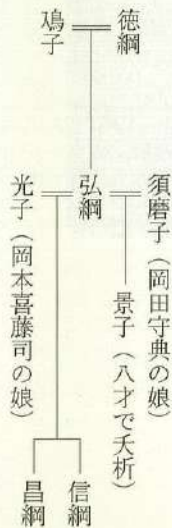 徳綱
鳰子
須磨子（岡田守典の娘）
弘綱
光子（岡本喜藤司の娘）
景子（八才で夭折）
信綱
昌綱